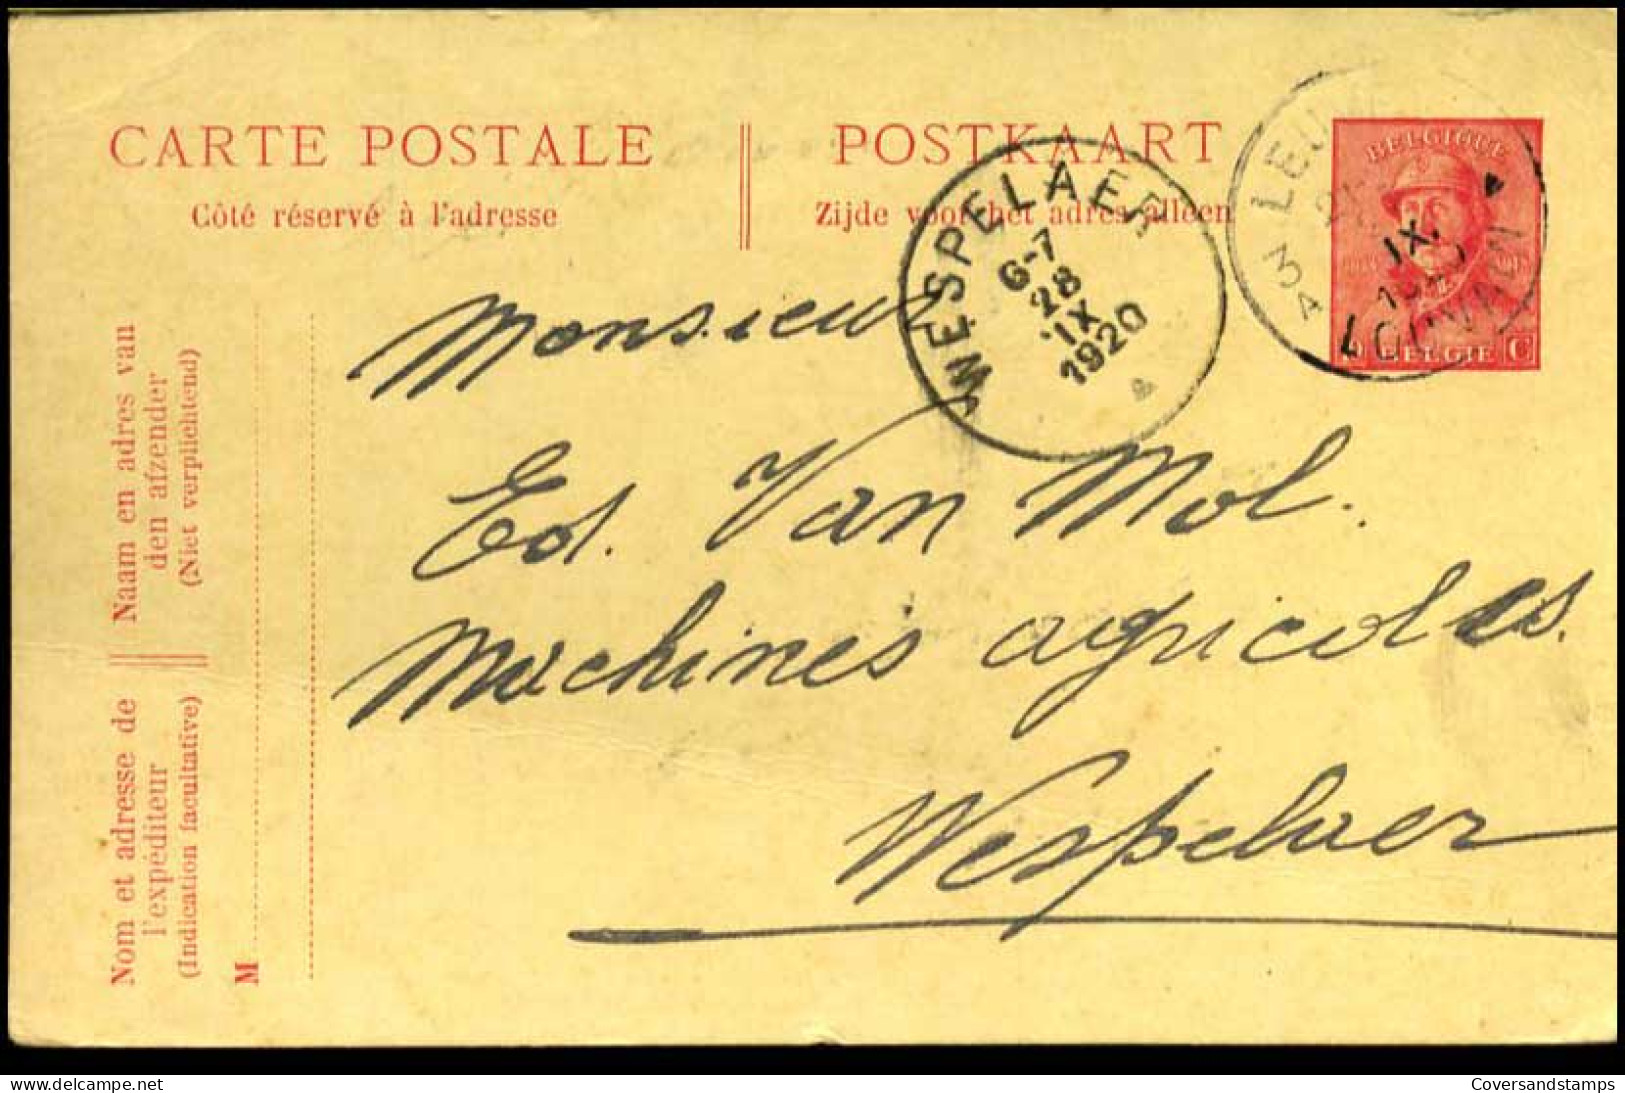 CARTE POSTALE
Côté réservé à l'adresse
POSTKAART
Zijde voor het adres alleen
BELGIQUE
BELGIE
C
3
A
IX.
LOUVAIN
WESPELAER
6-7
28
IX
1920
Monsieur
Ed. Van Mol.
Machines agricoles.
Wespelaer
Naam en adres van
den afzender
(Niet verplichtend)
Nom et adresse de
l'expéditeur
(Indication facultative)
M
www.delcampe.net
Coversandstamps